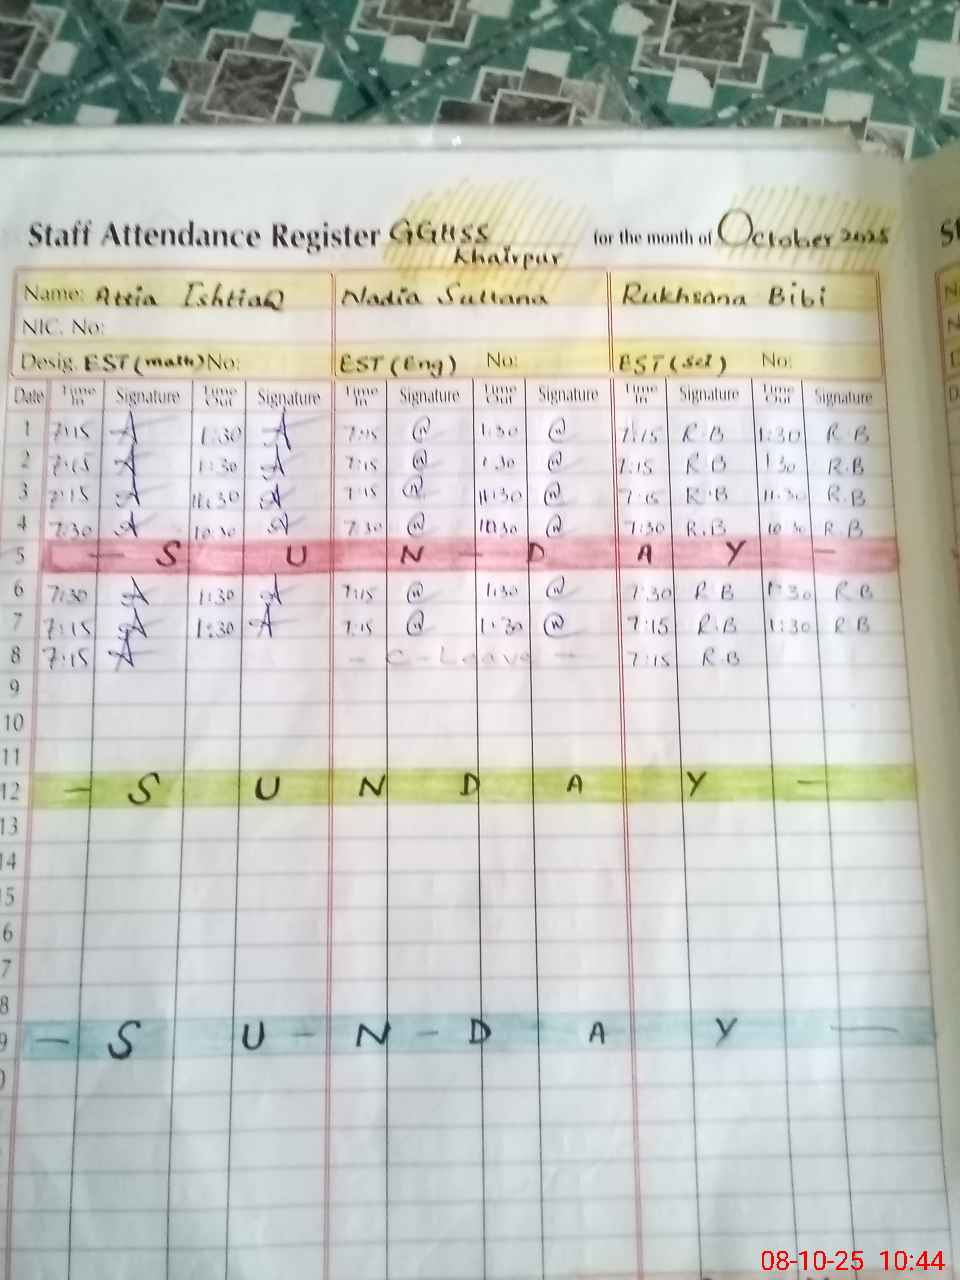 Staff Attendance Register GGHSS Khairpur for the month of October 2025 St
Name: Attia IshtiaQ Nadia Sultana Rukhsana Bibi
NIC. No:
Desig. EST (math) No: EST (Eng) No: EST (Sci) No:
Date Time In Signature Time Out Signature Time In Signature Time Out Signature Time In Signature Time Out Signature
1 7:15 A 1:30 A 7:15 @ 1:30 @ 7:15 R.B 1:30 R.B
2 7:15 A 1:30 A 7:15 @ 1:30 @ 7:15 R.B 1:30 R.B
3 7:15 A 11:30 A 7:15 @ 11:30 @ 7:15 R.B 11:30 R.B
4 7:30 A 10:30 A 7:30 @ 10:30 @ 7:30 R.B 10:30 R.B
5 - S U N - D A Y -
6 7:30 A 1:30 A 7:15 @ 1:30 @ 7:30 R B 1:30 R B
7 7:15 A 1:30 A 7:15 @ 1:30 @ 7:15 R.B 1:30 R B
8 7:15 A - C-Leave - 7:15 R.B
9
10
11
12 - S U N D A Y -
13
14
15
6
7
8
9 - S U - N - D A Y -
08-10-25 10:44